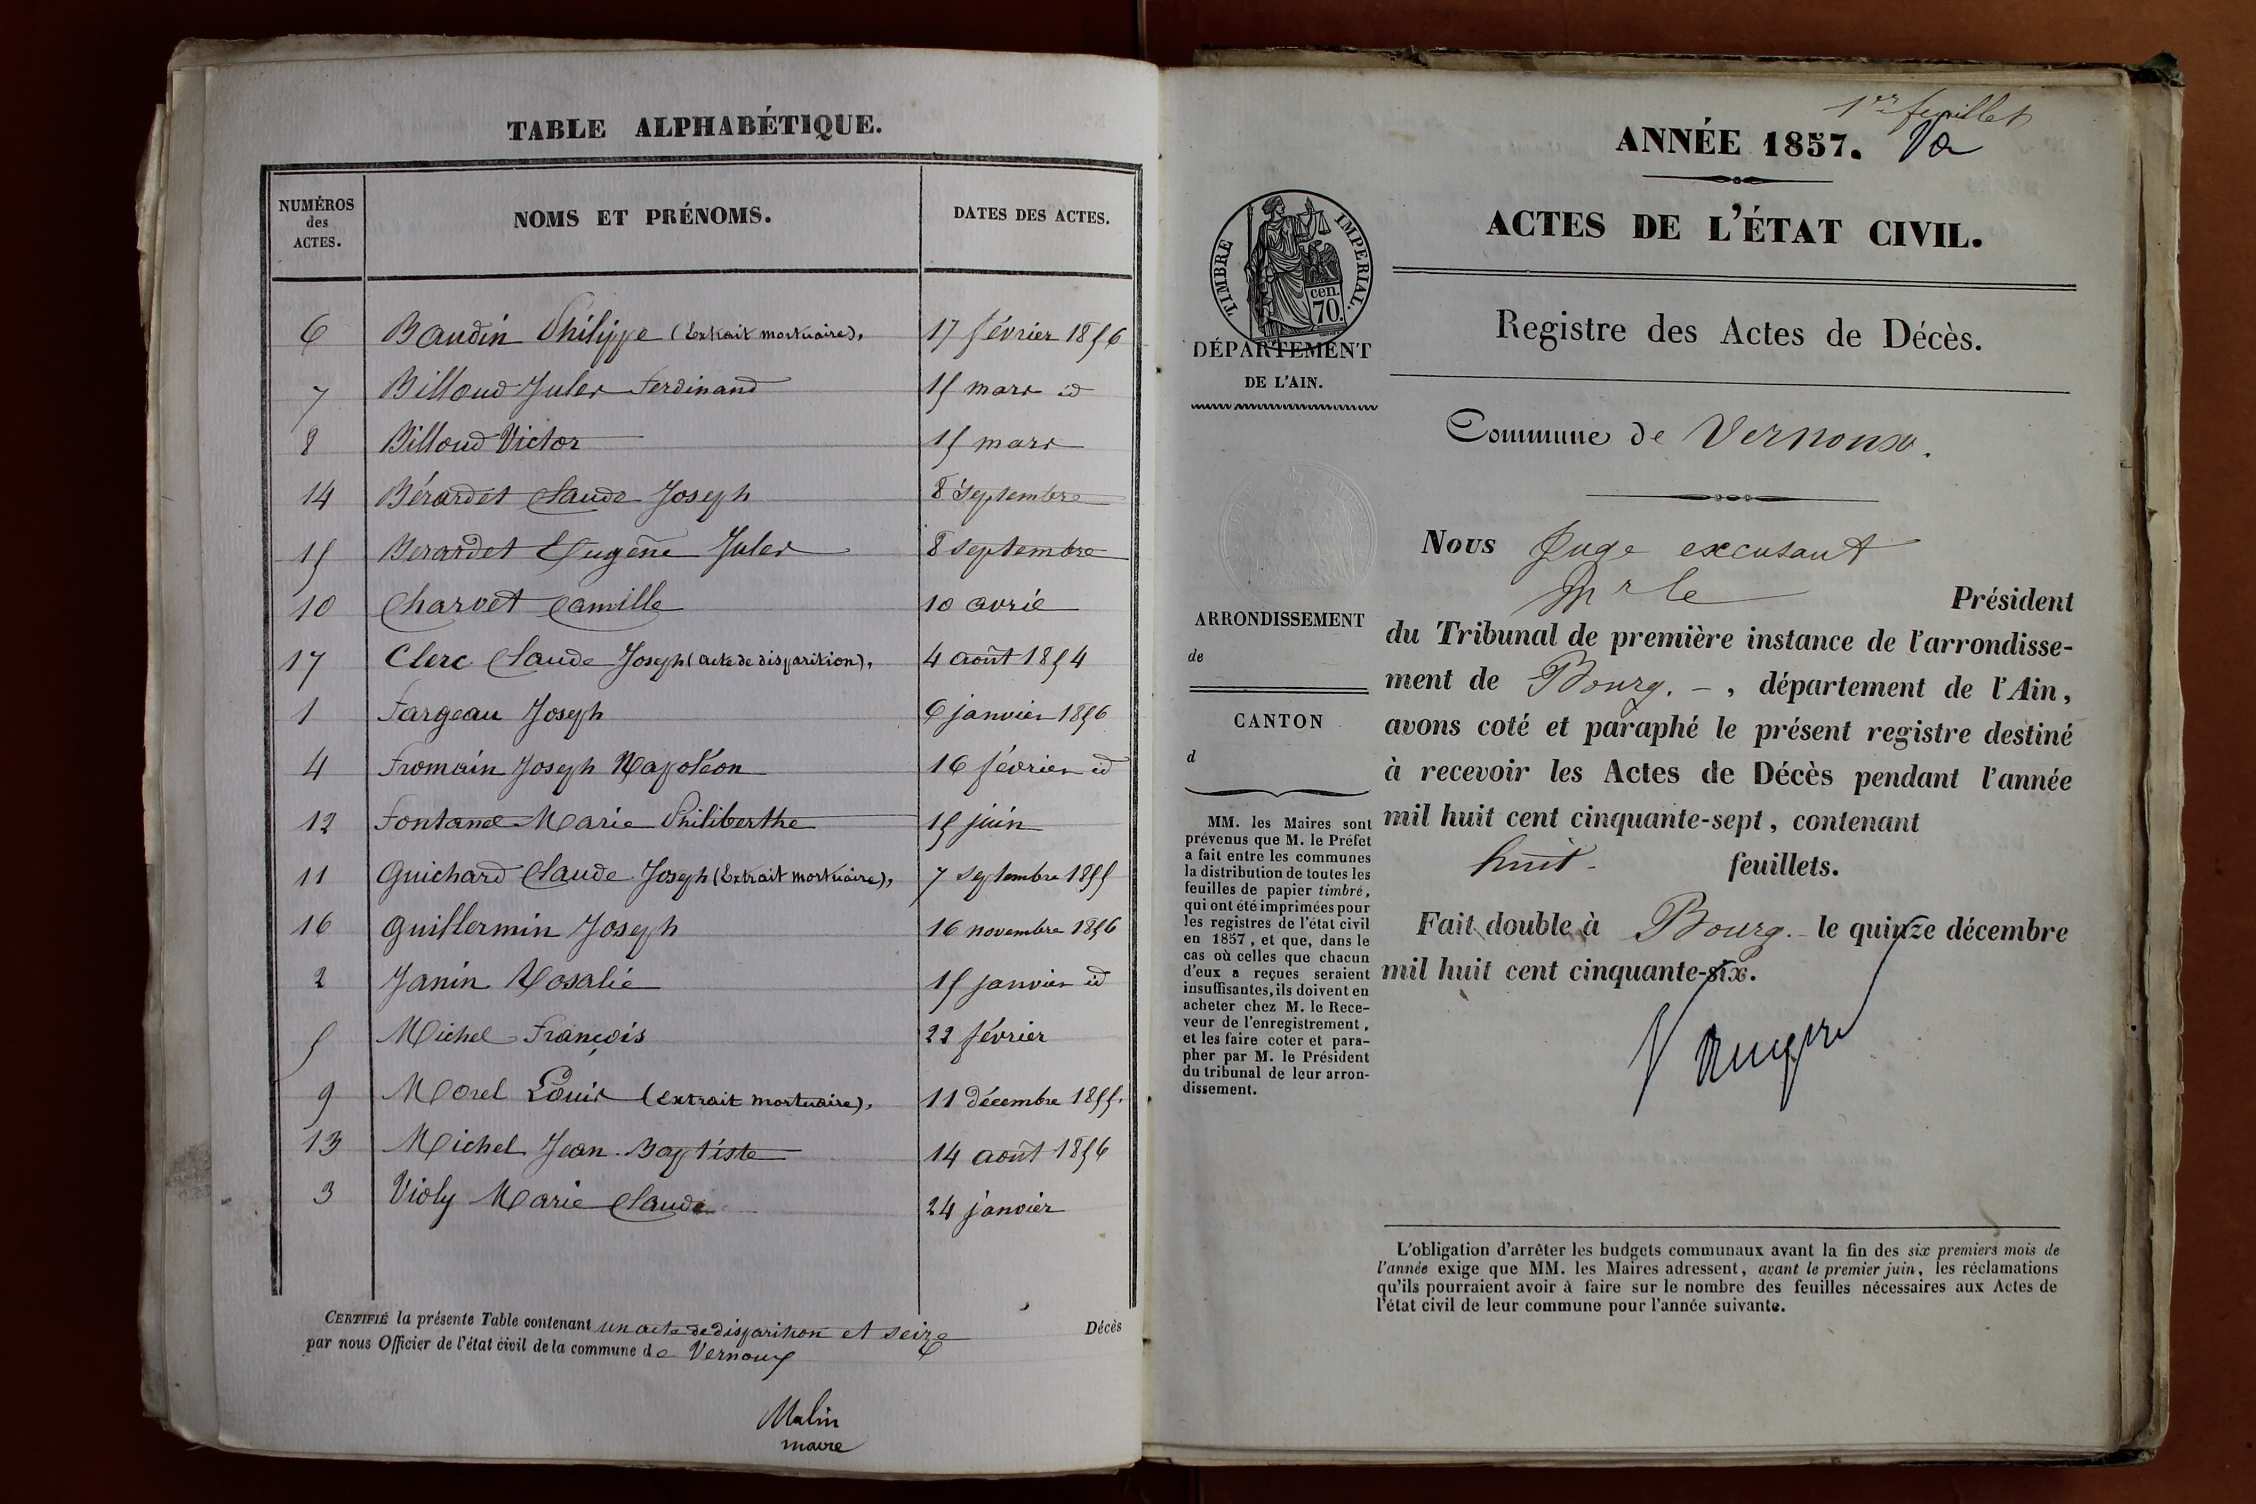 TABLE ALPHABÉTIQUE.
NUMÉROS
des
ACTES.
NOMS ET PRÉNOMS.
DATES DES ACTES.
6 Baudin Philippe (Extrait mortuaire). 17 février 1856
7 Billoud Jules Ferdinand 15 mars id
8 Billoud Victor 15 mars
14 Bérardet Claude Joseph 8 septembre
15 Berardet Eugène Jules 8 septembre
10 Charvet Camille 10 avril
17 Clerc Claude Joseph (acte de disparition). 4 août 1854
1 Fargeau Joseph 6 janvier 1856
4 Fromain Joseph Napoléon 16 février id
12 Fontanel Marie Philiberthe 15 juin
11 Guichard Claude Joseph (Extrait mortuaire). 7 septembre 1855
16 Guillermin Joseph 16 novembre 1856
2 Janin Rosalie 15 janvier id
5 Michel François 22 février
9 Morel Louis (extrait mortuaire). 11 décembre 1855.
13 Michel Jean Baptiste 14 août 1856
3 Violy Marie Claude 24 janvier
CERTIFIÉ la présente Table contenant un acte de disparition et seize Décès
par nous Officier de l'état civil de la commune de Vernoux
Malin
maire
1er feuillet
ANNÉE 1857.
ACTES DE L'ÉTAT CIVIL.
TIMBRE IMPERIAL.
cen.
70.
DÉPARTEMENT
DE L'AIN.
Registre des Actes de Décès.
Commune de Vernoux.
Nous Juge excusant
Mr le Président
du Tribunal de première instance de l'arrondisse-
ment de Bourg. - , département de l'Ain,
avons coté et paraphé le présent registre destiné
à recevoir les Actes de Décès pendant l'année
mil huit cent cinquante-sept, contenant
huit feuillets.
Fait double à Bourg. - le quinze décembre
mil huit cent cinquante-six.
ARRONDISSEMENT
de
CANTON
d
MM. les Maires sont
prévenus que M. le Préfet
a fait entre les communes
la distribution de toutes les
feuilles de papier timbré,
qui ont été imprimées pour
les registres de l'état civil
en 1857, et que, dans le
cas où celles que chacun
d'eux a reçues seraient
insuffisantes, ils doivent en
acheter chez M. le Rece-
veur de l'enregistrement,
et les faire coter et para-
pher par M. le Président
du tribunal de leur arron-
dissement.
L'obligation d'arrêter les budgets communaux avant la fin des six premiers mois de
l'année exige que MM. les Maires adressent, avant le premier juin, les réclamations
qu'ils pourraient avoir à faire sur le nombre des feuilles nécessaires aux Actes de
l'état civil de leur commune pour l'année suivante.